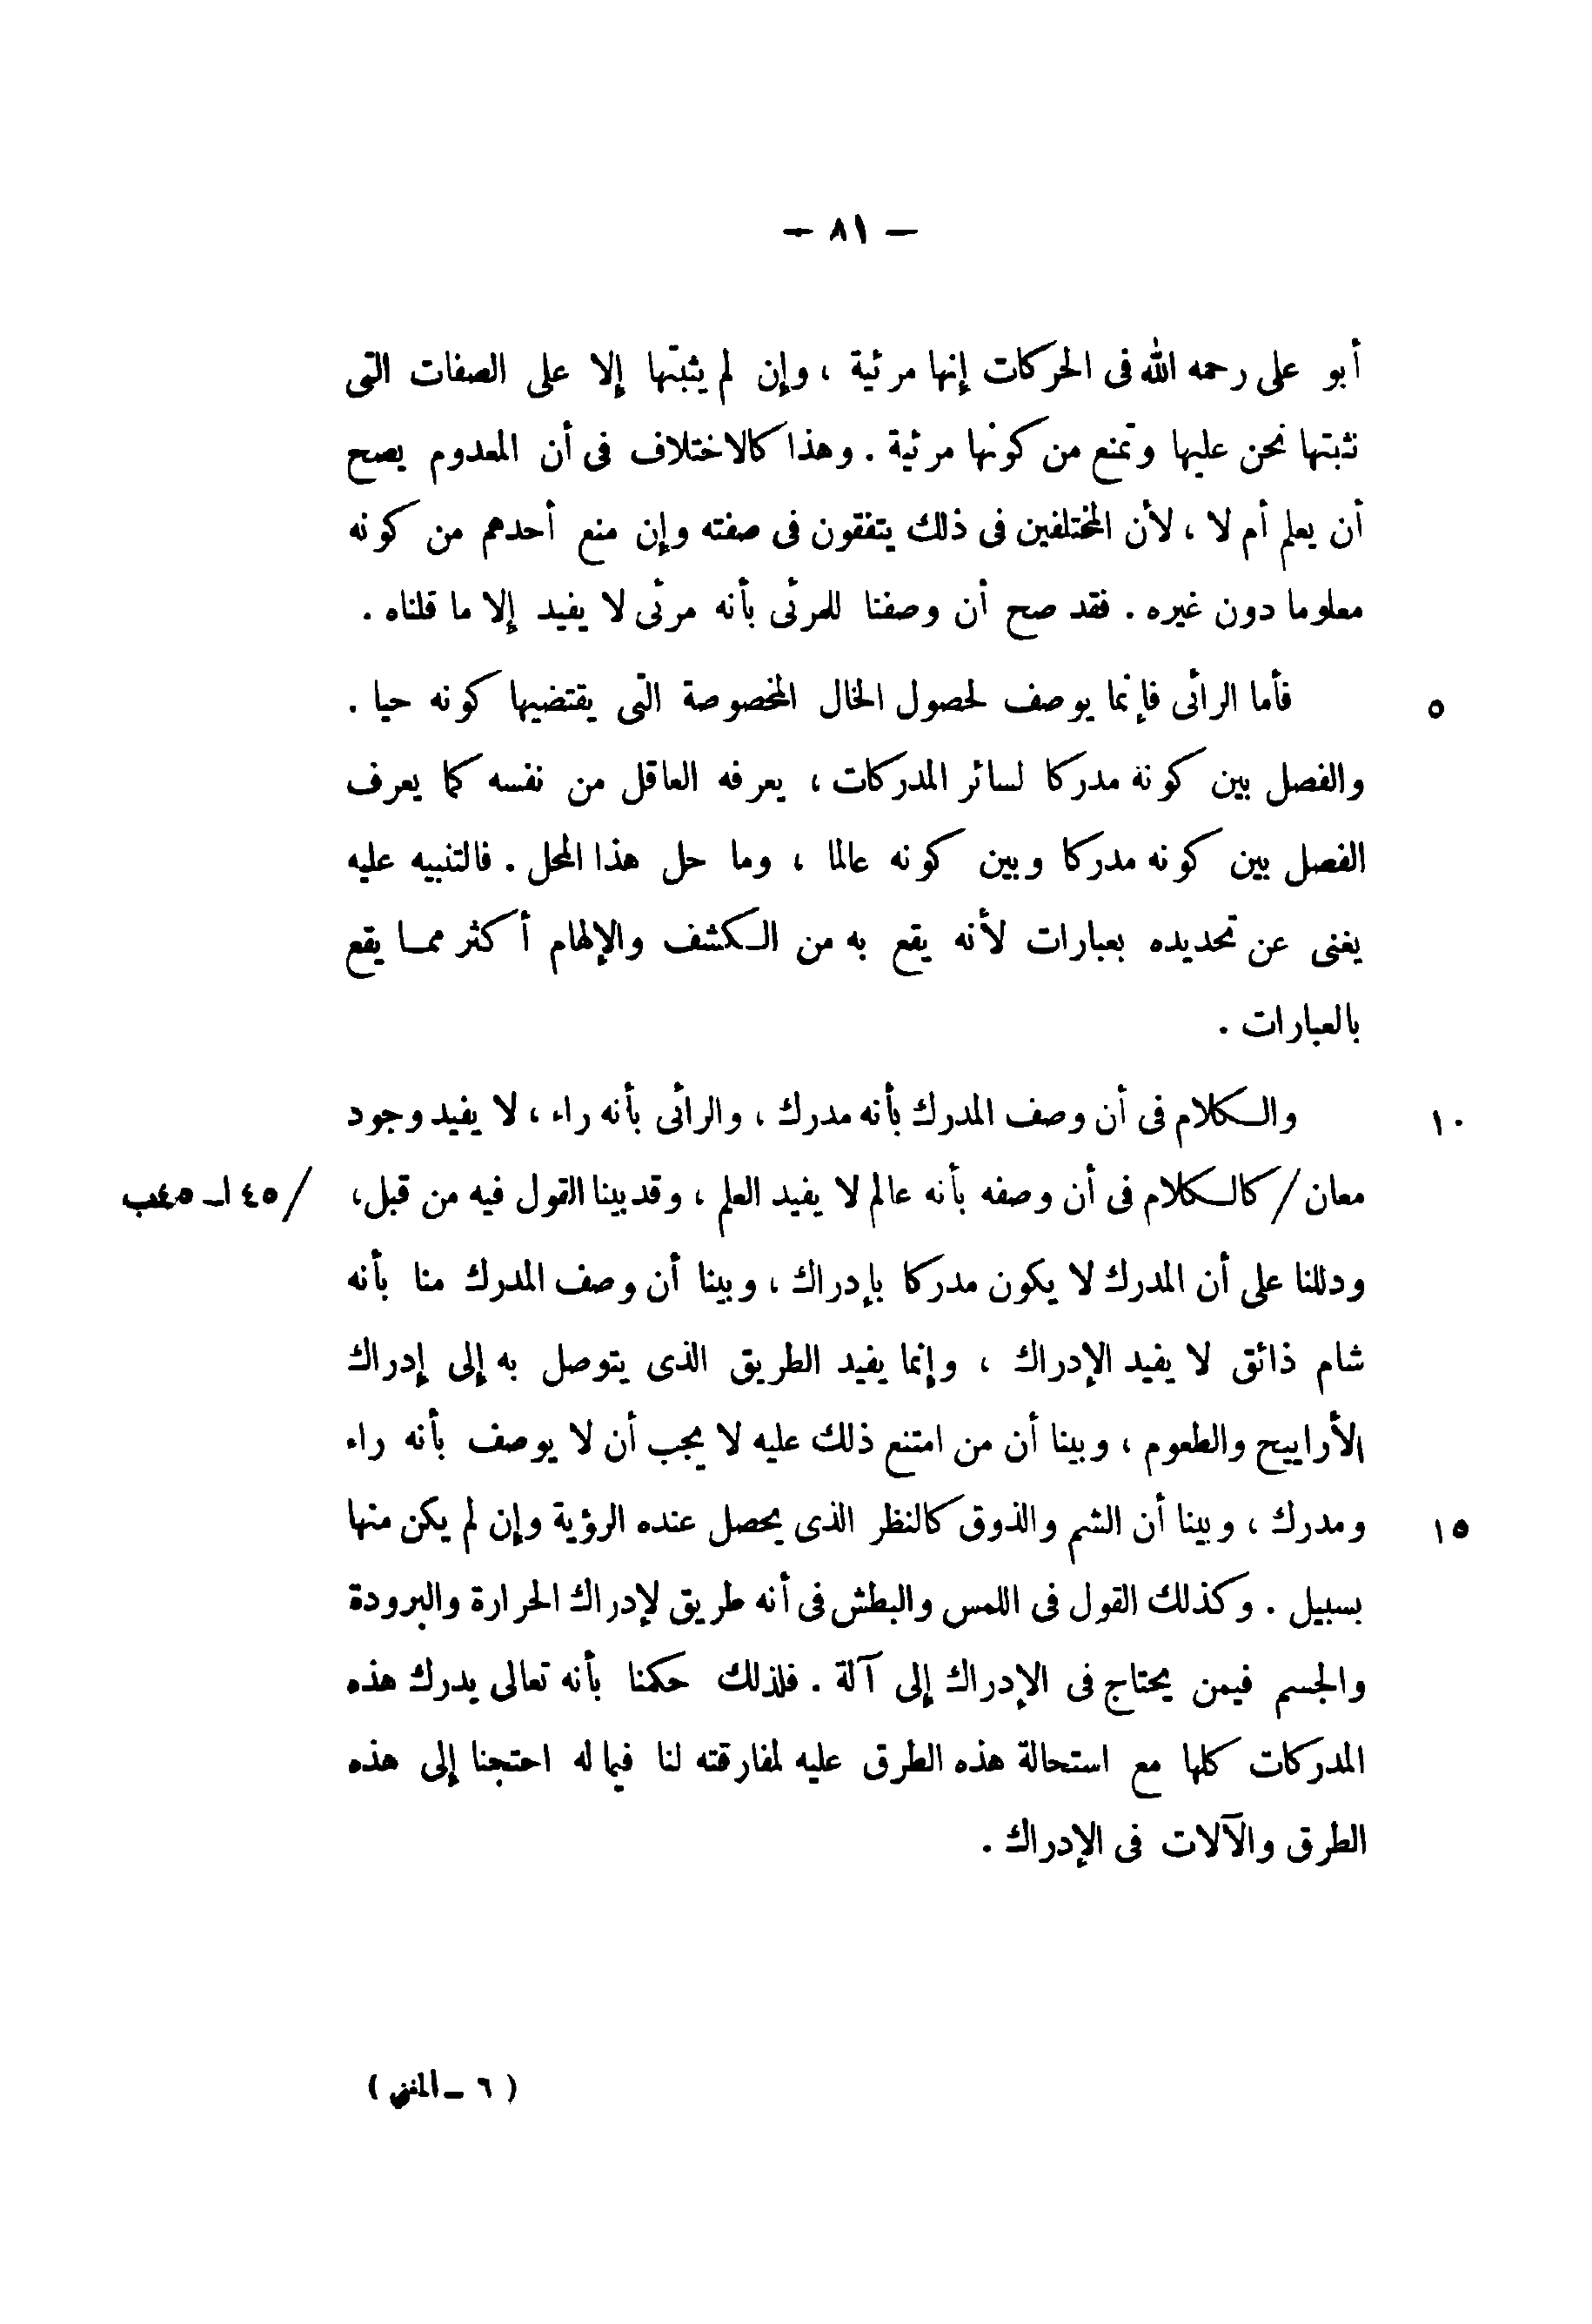 — ٨١ —
أبو على رحمه الله فى الحركات إنها مرئية ، وإن لم يثبتها إلا على الصفات التى
نثبتها نحن عليها وتمنع من كونها مرئية . وهذا كالاختلاف فى أن المعدوم يصح
أن يعلم أم لا ، لأن المختلفين فى ذلك يتفقون فى صفته وإن منع أحدهم من كونه
معلوما دون غيره . فقد صح أن وصفنا للمرئى بأنه مرئى لا يفيد إلا ما قلناه .
٥ فأما الرائى فإنما يوصف لحصول الخال المخصوصة التى يقتضيها كونه حيا .
والفصل بين كونه مدركا لسائر المدركات ، يعرفه العاقل من نفسه كما يعرف
الفصل بين كونه مدركا وبين كونه عالما ، وما حل هذا المحل . فالتنبيه عليه
يغنى عن تحديده بعبارات لأنه يقع به من الكشف والإلهام أكثر مما يقع
بالعبارات .
١٠ والكلام فى أن وصف المدرك بأنه مدرك ، والرائى بأنه راء ، لا يفيد وجود
معان / كالكلام فى أن وصفه بأنه عالم لا يفيد العلم ، وقد بينا القول فيه من قبل، / ٤٥ ا ـ ٤٥ب
ودللنا على أن المدرك لا يكون مدركا بإدراك ، وبينا أن وصف المدرك منا بأنه
شام ذائق لا يفيد الإدراك ، وإنما يفيد الطريق الذى يتوصل به إلى إدراك
الأراييح والطعوم ، وبينا أن من امتنع ذلك عليه لا يجب أن لا يوصف بأنه راء
١٥ ومدرك ، وبينا أن الشم والذوق كالنظر الذى يحصل عنده الرؤية وإن لم يكن منها
بسبيل . وكذلك القول فى اللمس والبطش فى أنه طريق لإدراك الحرارة والبرودة
والجسم فيمن يحتاج فى الإدراك إلى آلة . فلذلك حكمنا بأنه تعالى يدرك هذه
المدركات كلها مع استحالة هذه الطرق عليه لمفارقته لنا فيما له احتجنا إلى هذه
الطرق والآلات فى الإدراك .
( ٦ ـ المغنى )